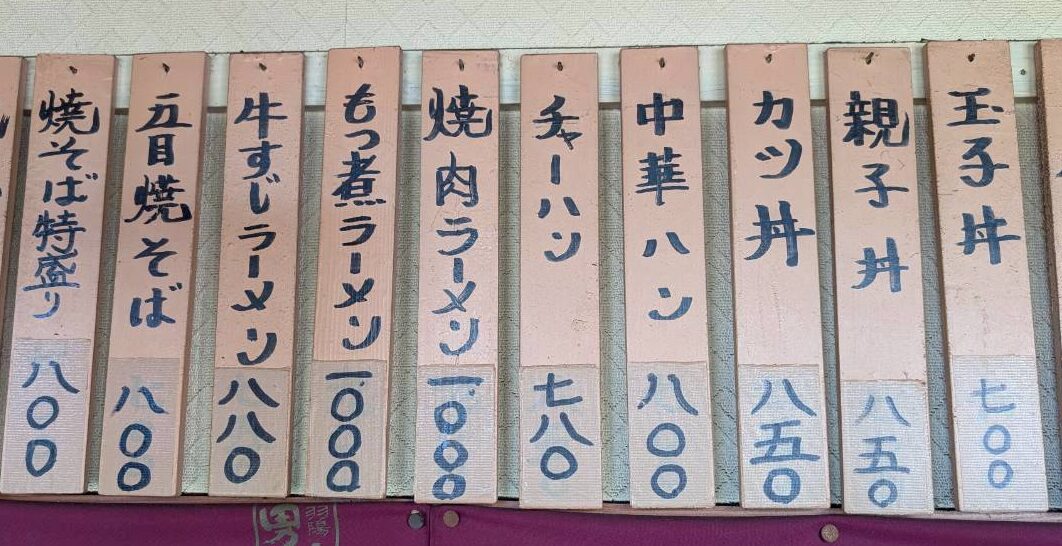 玉子丼 七〇〇
親子丼 八五〇
カツ丼 八五〇
中華ハン 八〇〇
チャーハン 七八〇
焼肉ラーメン 一、〇〇〇
もつ煮ラーメン 一、〇〇〇
牛すじラーメン 八八〇
五目焼そば 八〇〇
焼そば特盛り 八〇〇
男